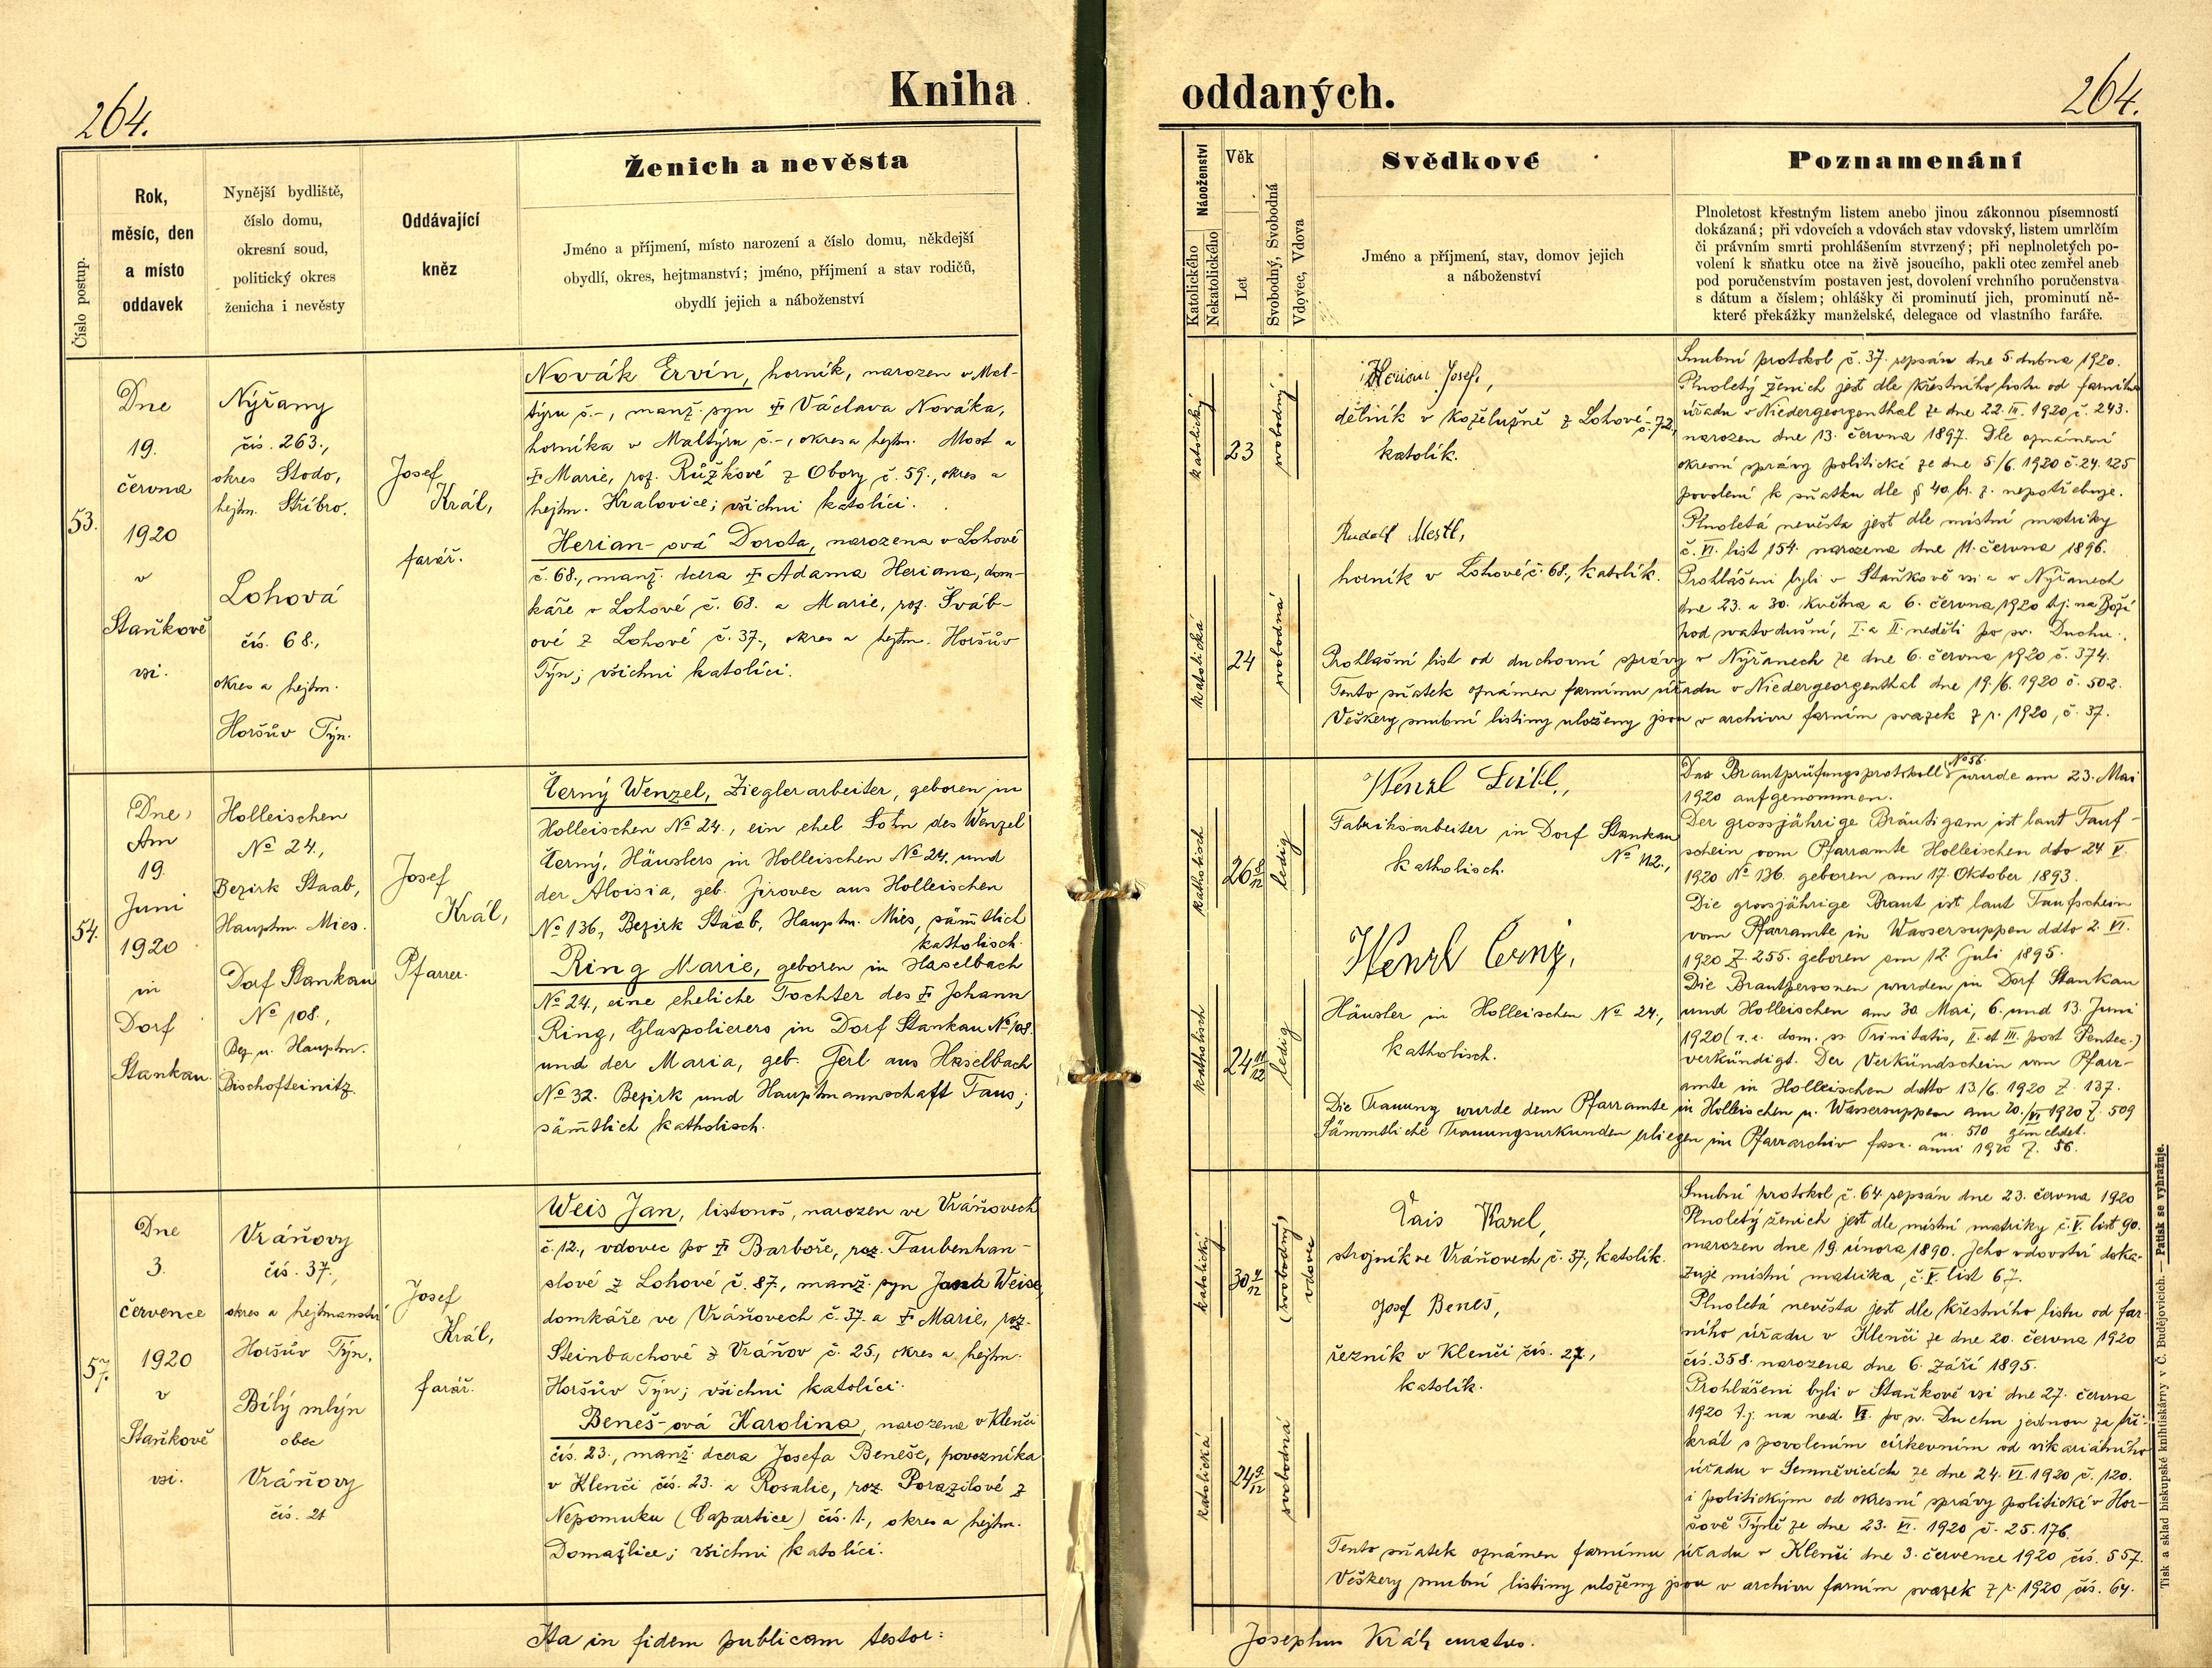 264.
Kniha
oddaných.
264.
Číslo postup.
Rok,
měsíc, den
a místo
oddavek
Nynější bydliště,
číslo domu,
okresní soud,
politický okres
ženicha i nevěsty
Oddávající
kněz
Ženich a nevěsta
Jméno a příjmení, místo narození a číslo domu, někdejší
obydlí, okres, hejtmanství; jméno, příjmení a stav rodičů,
obydlí jejich a náboženství
Náboženství
Katolického
Nekatolického
Věk
Let
Svobodný, Svobodná
Vdovec, Vdova
Svědkové
Jméno a příjmení, stav, domov jejich
a náboženství
Poznamenání
Plnoletost křestným listem anebo jinou zákonnou písemností
dokázaná; při vdovcích a vdovách stav vdovský, listem umrlčím
či právním smrti prohlášením stvrzený; při neplnoletých po-
volení k sňatku otce na živě jsoucího, pakli otec zemřel aneb
pod poručenstvím postaven jest, dovolení vrchního poručenstva
s dátum a číslem; ohlášky či prominutí jich, prominutí ně-
které překážky manželské, delegace od vlastního faráře.
53.
Dne
19.
června
1920
v
Staňkově
vsi.
Nýřany
čís. 263.,
okres Stodo,
hejtm. Stříbro.
Lohová
čís. 68.,
okres a hejtm.
Horšův Týn.
Josef
Král,
farář.
Novák Ervín, horník, narozen v Mal-
týru č.-, manž. syn † Václava Nováka,
horníka v Maltýru č.-, okres a hejtm. Most a
† Marie, roz. Růžkové z Obory č. 59., okres a
hejtm. Kralovice; všichni katolíci.
Herian-ová Dorota, narozena v Lohové
č. 68., manž. dcera † Adama Heriana, dom-
káře v Lohové č. 68. a Marie, roz. Šváb-
ové z Lohové č. 37., okres a hejtm. Horšův
Týn; všichni katolíci.
katolický
23
svobodný
katolická
24
svobodná
Herian Josef,
dělník v koželužně z Lohové č. 72,
katolík.
Rudolf Mestl,
horník v Lohové č. 68., katolík.
Snubní protokol č. 37. sepsán dne 5. dubna 1920.
Plnoletý ženich jest dle křestního listu od farního
úřadu v Niedergeorgenthal ze dne 22. III. 1920 č. 243.
narozen dne 13. června 1897. Dle oznámení
okresní správy politické ze dne 5/6. 1920 č. 24.125
povolení k sňatku dle § 40. br. z. nepotřebuje.
Plnoletá nevěsta jest dle místní matriky
č. VI. list 154. narozena dne 11. června 1896.
Prohlášeni byli v Staňkově vsi a v Nýřanech
dne 23. a 30. května a 6. června 1920 t.j. na Boží
hod svatodušní, I. a II. neděli po sv. Duchu.
Prohlašní list od duchovní správy v Nýřanech ze dne 6. června 1920 č. 374.
Tento sňatek oznámen farnímu úřadu v Niedergeorgenthal dne 19./6. 1920 č. 502.
Veškery snubní listiny uloženy jsou v archivu farním svazek z r. 1920, č. 37.
54.
Dne
Am
19.
Juni
1920
in
Dorf
Stankau
Holleischen
No 24.,
Bezirk Staab,
Hauptm. Mies.
Dorf Stankau
No 108.,
Bez. u. Hauptm.
Bischofteinitz.
Josef
Král,
Pfarrer.
Černý Wenzel, Zieglerarbeiter, geboren in
Holleischen No 24., ein ehel Sohn des Wenzel
Černý, Häuslers in Holleischen No 24. und
der Aloisia, geb. Jirovec aus Holleischen
No 136, Bezirk Staab, Hauptm. Mies, säm̄tlich
katholisch.
Ring Marie, geboren in Haselbach
No 24., eine eheliche Tochter des † Johann
Ring, Glaspolierers in Dorf Stankau No 108.
und der Maria, geb. Ferl aus Haselbach
No 32. Bezirk und Hauptmannschaft Taus;
säm̄tlich katholisch.
katholisch
26 8/12
ledig
katholisch
24 11/12
ledig
Wenzl
Fabriksarbeiter in Dorf Stankau
No 112.,
katholisch.
Wenzl Černý,
Häusler in Holleischen No 24.,
katholisch.
Das Brautprüfungsprotokoll No 56. wurde am 23. Mai
1920 aufgenommen.
Der grossjährige Bräutigam ist laut Tauf-
schein vom Pfarramte Holleischen dto 24 V.
1920 No 136. geboren am 17. Oktober 1893.
Die grossjährige Braut ist laut Taufschein
vom Pfarramte in Wassersuppen ddto 2. VI.
1920 Z. 255. geboren am 12. Juli 1895.
Die Brautpersonen wurden in Dorf Stankau
und Holleischen am 30. Mai, 6. und 13. Juni
1920 (i. e. dom. ss Trinitatis, II. et III. post Pentec.)
verkündigt. Der Verkündschein vom Pfarr-
amte in Holleischen ddtto 13/6. 1920 Z. 137.
Die Trauung wurde dem Pfarramte in Holleischen u. Wassersuppen am 20./VI 1920 Z. 509
u. 510 gemeldet.
Sämmtliche Trauungsurkunden erliegen im Pfarrarchiv fasc. anni 1920 Z. 56.
57.
Dne
3.
července
1920
v
Staňkově
vsi.
Vráňovy
čís. 37.,
okres a hejtmanství
Horšův Týn.
Bílý mlýn
obec
Vráňovy
čís. 21
Josef
Král,
farář.
Weis Jan, listonoš, narozen ve Vráňovech
č. 12., vdovec po † Barboře, roz. Taubenhan-
slové z Lohové č. 87., manž. syn Jana Weise,
domkáře ve Vráňovech č. 37. a † Marie, roz.
Steinbachové z Vráňov č. 25., okres a hejtm.
Horšův Týn; všichni katolíci.
Beneš-ová Karolina, narozena v Klenčí
čís. 23., manž. dcera Josefa Beneše, povozníka
v Klenčí čís. 23. a Rosalie, roz. Porazilové z
Nepomuku (Capartice) čís. 1., okres a hejtm.
Domažlice; všichni katolíci.
katolický
30 4/12
(svobodný)
vdovec
katolická
24 9/12
svobodná
Karel,
strojník ve Vráňovech č. 37, katolík.
Josef Beneš,
řezník v Klenčí čís. 27.,
katolík.
Snubní protokol č. 64 sepsán dne 23. června 1920
Plnoletý ženich jest dle místní matriky č. V. list 90.
narozen dne 19. února 1890. Jeho vdovství doka-
zuje místní matrika, č. V. list 67.
Plnoletá nevěsta jest dle křestního listu od far-
ního úřadu v Klenčí ze dne 20. června 1920
čís. 358. narozena dne 6. září 1895.
Prohlášeni byli v Staňkově vsi dne 27. června
1920 t.j. na ned. VI. po sv. Duchu jednou za tři-
krát s povolením církevním od vikariátního
úřadu v Semněvicích ze dne 24. VI. 1920 č. 120.
i politickým od okresní správy politické v Hor-
šově Týně ze dne 23. VI. 1920 č. 25.176.
Tento sňatek oznámen farnímu úřadu v Klenčí dne 3. července 1920 čís. 557.
Veškery snubní listiny uloženy jsou v archivu farním svazek z r. 1920 čís. 64.
Ita in fidem publicam testor:
Josephus Král, curatus.
Tisk a sklad biskupské knihtiskárny v Č. Budějovicích. — Patisk se vyhražuje.